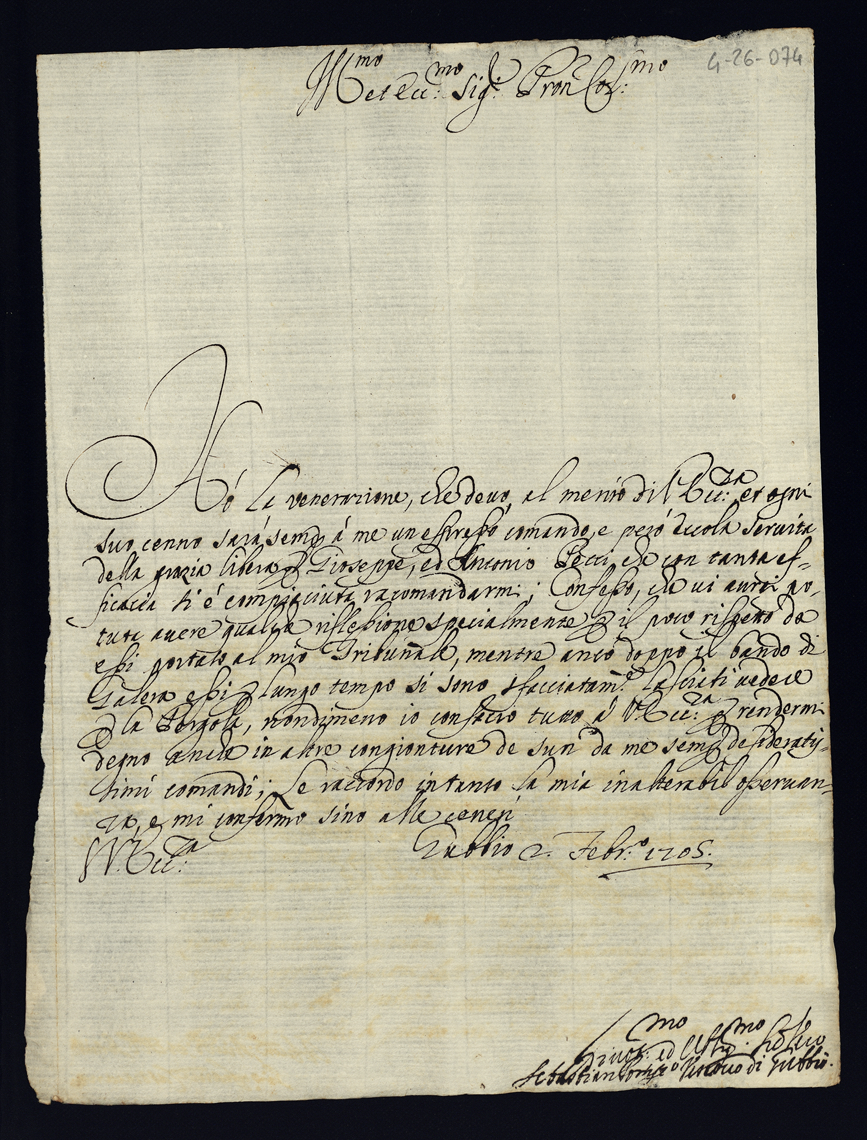 4-26-074
Ill.mo et Ecc.mo Sig.r Pron Col.mo
Hó la venerazione, che devo, al merito di V. Ecc.za, et ogni
suo cenno sará semp á me un espresso comando, e peró eccola servita
della grazia libera p Gioseppe, ed Antonio Pecci che con tanta ef-
ficacia si é compiaciuta racomandarmi; Confesso, che vi avrei po-
tuta avere qualche riflessione specialmente p il poco rispetto da
essi portato al mio Tribunale, mentre anco doppo il bando di
Galera essi p lungo tempo si sono sfacciatam.e lasciati vedere
p la Pergola, nondimeno io consacro tutto á V. Ecc.za p rendermi
degno anche in altre congionture de suoi da me semp desideratis-
simi comandi; Le raccordo intanto la mia inalterabil osservan-
za, e mi confermo sino alle ceneri
V. Ecc.za
Gubbio 2. Febr.o 1705.
Divot.mo ed Oblig.mo
Sebastian Vescovo di Gubbio.